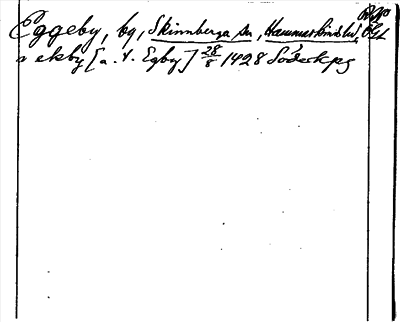 Eggeby, by, Skinnberga sn, Hammarkinds hd, Ögl.
a ekby [a. v. Egby] 28/8 1428 Söderkpg